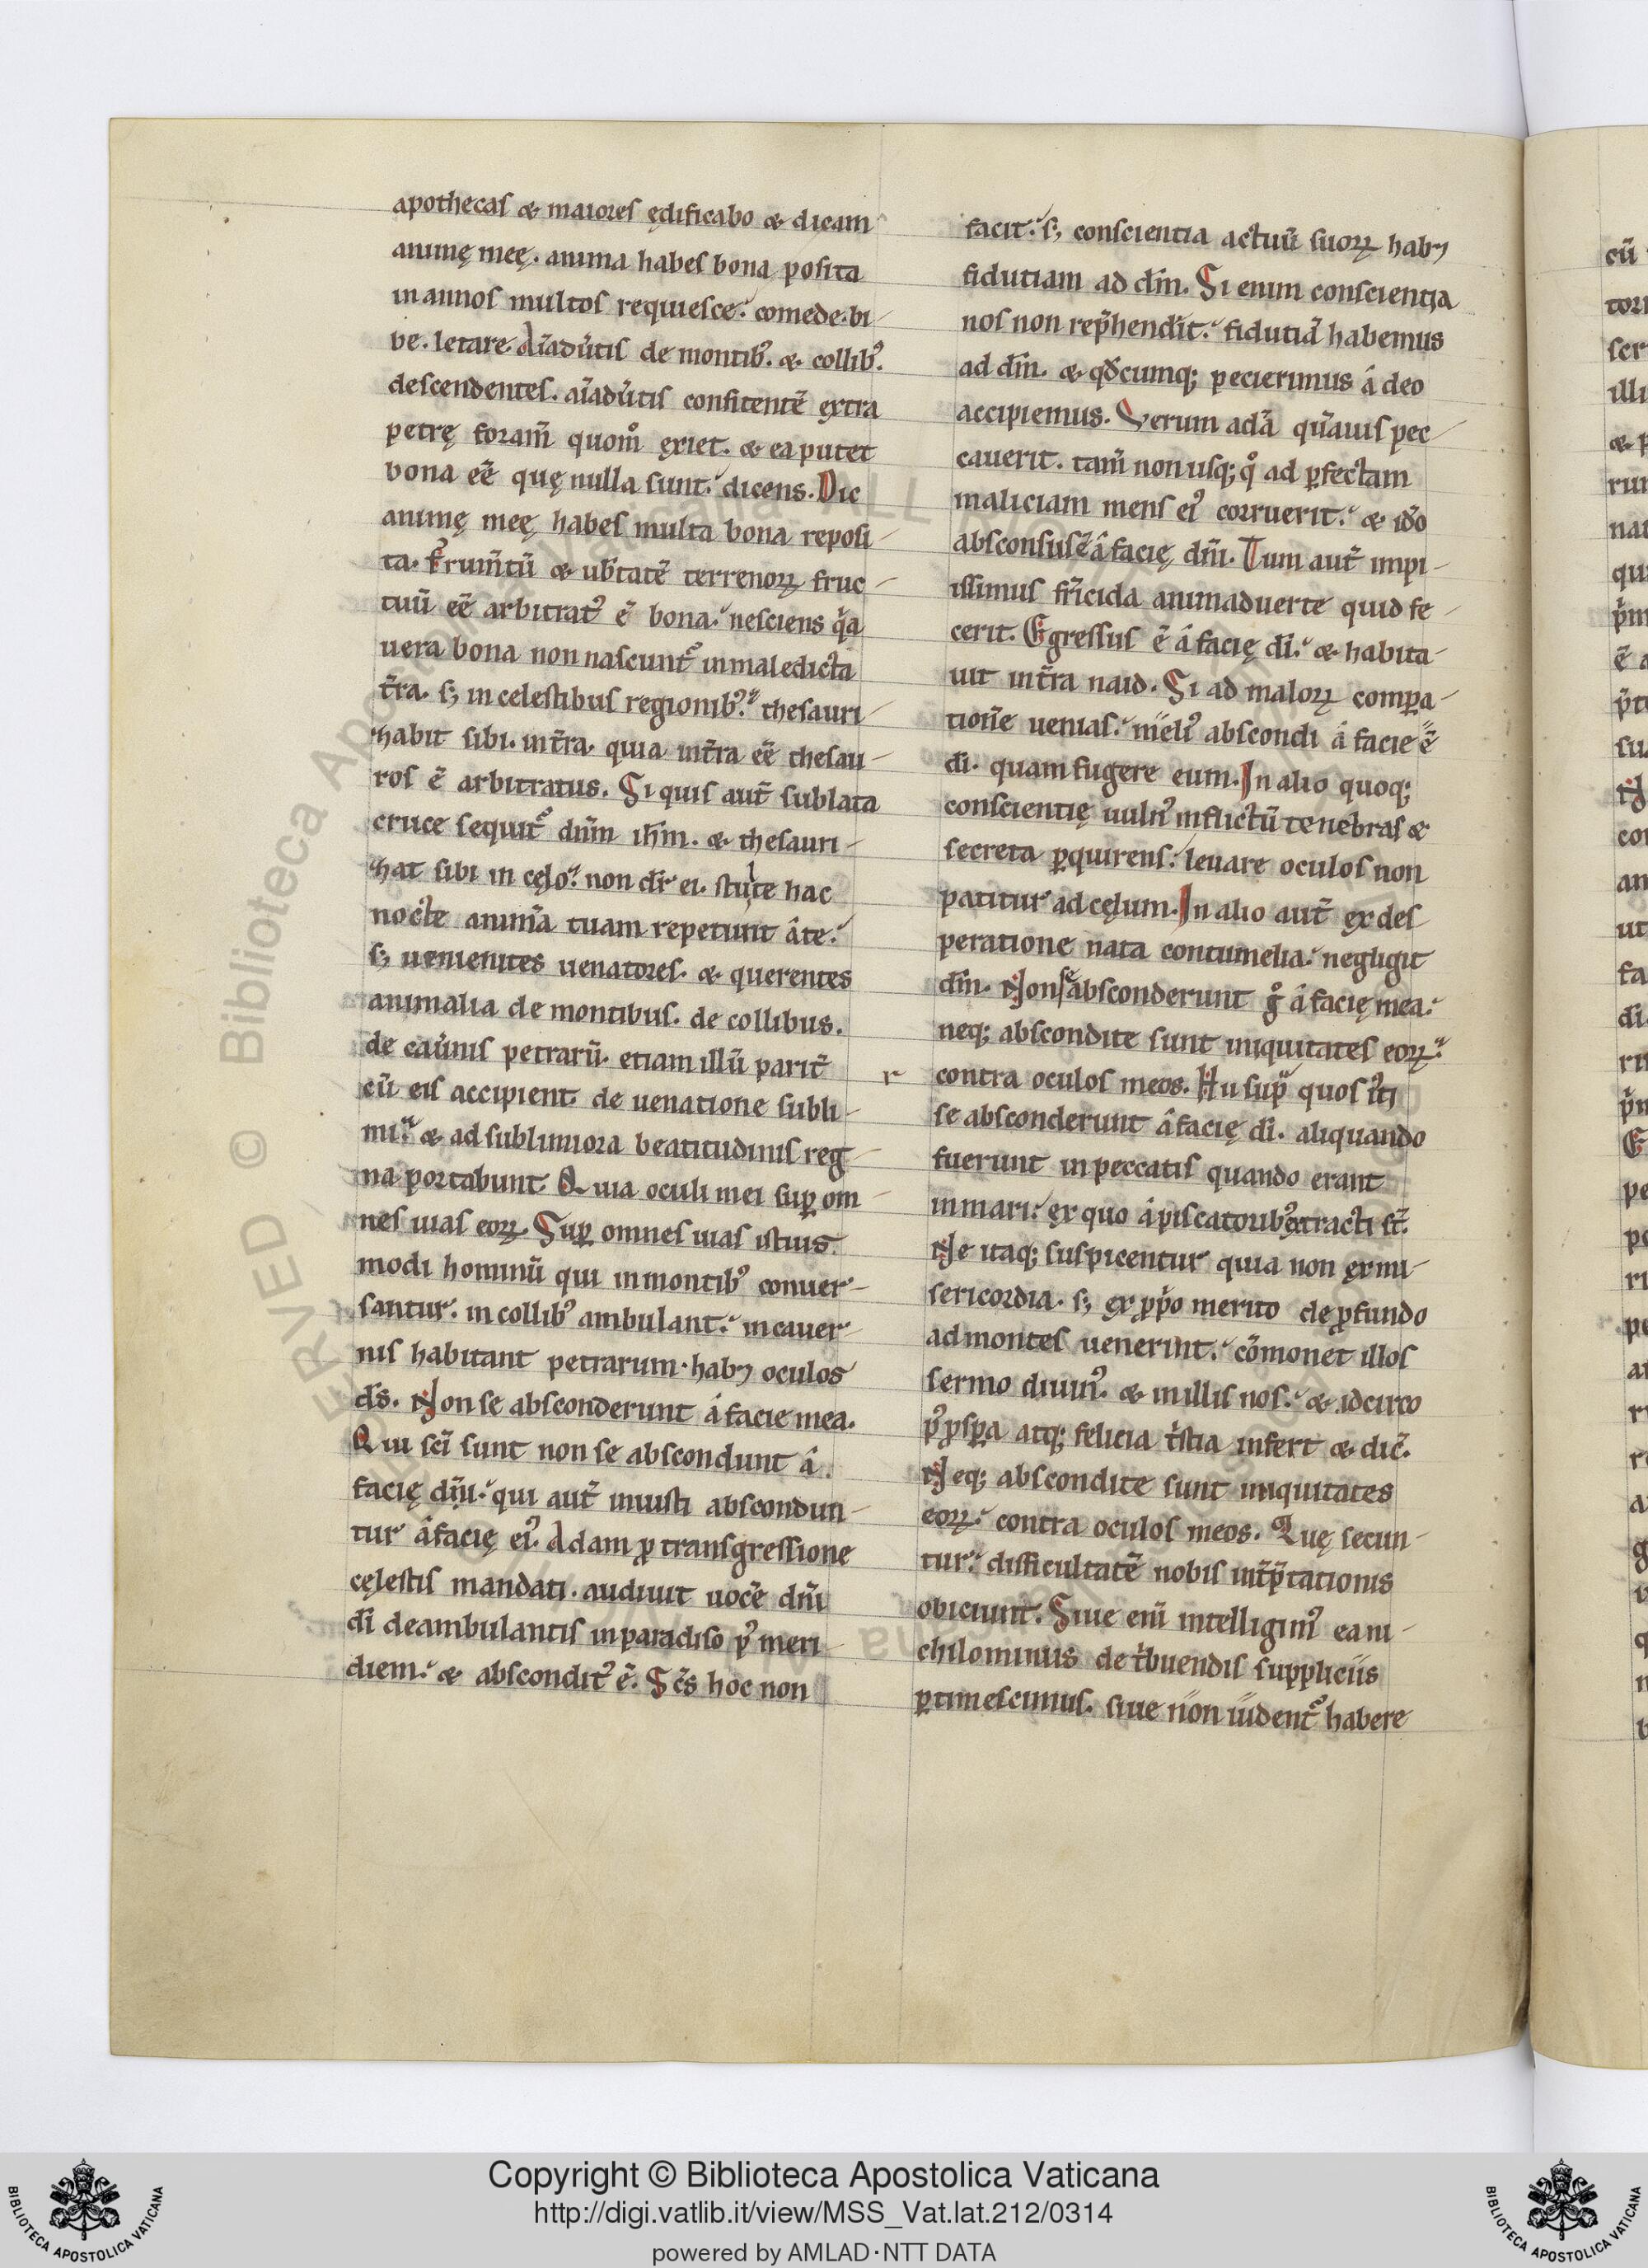 apothecas & maiores ędificabo & dicam
animę meę. anima habes bona posita
in annos multos requiesce. comede. bi-
be. letare. Aīaduͥtis de montib⁹. & collib⁹.
descendentes. aīaduͥtis confitentē extra
petrę foram̄ quom̊ exiet. & ea putet
bona eē̄ quę nulla sunt. dicens. Dic
animę meę habes multa bona reposi-
ta. Frum̄tū & ub̄tatē terrenoꝝ fruc-
tuū eē̄ arbitrat⁹ ē bona. nesciens qͥa
uera bona non nascunt᷑ in maledicta
t̄ra. s; in celestibus regionib⁹. thesauri-
hat sibi in cęlo. non dr̄ ei. stulte hac
nocte animā tuam repetunt â te.
s; uenientes uenatores. & querentes
animalia de montibus. de collibus.
de cauͥnis petrarū. etiam illū parit̄
cū eis accipient de uenatione subli-
mi. & ad sublimiora beatitudinis reg-
na portabunt. Quia oculi mei suꝑ om-
nes uias eoꝝ. Suꝑ omnes uias istius
modi hominū qui in montib⁹ conuer-
santur. in collib⁹ ambulant. in cauer-
nis habitant petrarum. habꝫ oculos
ds̄. Non se absconderunt á facie mea.
Qui sc̄i sunt non se abscondunt â
facię dn̄i. qui aut̄ iniusti abscondun-
tur â facię ei⁹. Adam ꝓ transgressione
cęlestis mandati. audiuit uocē dn̄i
dī deambulantis in paradiso p⁹ meri-
diem. & abscondit⁹ ē. Sc̄s hoc non
facit. s; conscientia actuū suoꝝ habꝫ
fidutiam ad dm̄. Si enim conscientia
nos non rep̄hendit. fidutiā habemus
ad dm̄. & qd̄cumq; pecierimus á deo
accipiemus. Verum adā quāuis pec-
cauerit. tam̄ non usq; qͦ ad ꝑfectam
maliciam mens ei⁹ corruerit. & id̊o
absconsus ē â facię dn̄i. Tum aut̄ impi-
issimus fr̄icida animaduerte quid fe-
cerit. Egressus ē â facię dī. & habita-
uit in t̄ra naid. Si ad maloꝝ compa-
tionē uenias. meli⁹ abscondi á facie ē
dī. quam fugere eum. In alio quoq;
conscientię uuln⁹ inflictū tenebras &
secreta ꝑquirens. leuare oculos non
patitur ad cęlum. In alio aut̄ ex des
peratione nata contumelia. negligit
dm̄. Non s̄ absconderunt gͦ â facię mea.
neq; abscondite sunt iniquitates eoꝝ.
r contra oculos meos. Hii suꝑ quos iͥti
se absconderunt â facię dī. aliquando
fuerunt in peccatis quando erant
in mari. ex quo á piscatorib⁹ extracti st̄.
Ne itaq; suspicentur quia non ex mi-
sericordia. s; ex ꝓpͥo merito de ꝓfundo
ad montes uenerint. cōmonet illos
sermo diuin⁹. & in illis nos. & idcirco
p⁹ ꝓsꝑa atq; felicia tͥstia infert & dic̄.
Neq; abscondite sunt iniquitates
eoꝝ. contra oculos meos. Quę secun-
tur. difficultatē nobis int̄p̄tationis
obiciunt. Siue enī intelligim⁹ ea ni-
chilominus de tͥbuendis suppliciis
ꝑtimescimus. siue non uident᷑ habere
Copyright © Biblioteca Apostolica Vaticana
http://digi.vatlib.it/view/MSS_Vat.lat.212/0314
powered by AMLAD·NTT DATA
BIBLIOTECA APOSTOLICA VATICANA
BIBLIOTECA APOSTOLICA VATICANA